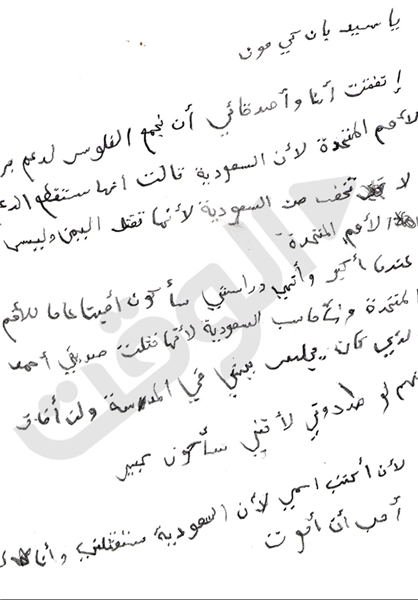 يا سيد بان كي مون
إتفقت أنا وأصدقائي أن نجمع الفلوس لدعم بر
لأمم المتحدة لأن السعودية قالت أنها ستقطع الدع
لا تخف من السعودية لأنها تقتل اليمن وليس
الأمم المتحدة
عندما أكبر وأنهي دراستي سأكون أمينا عاما للأمم
المتحدة وسأحاسب السعودية لأنها قتلت صديقي أحمد
لذي كان يجلس بجنبي في المدرسة ولن أخاف
نهم لو هددوني لأنني سأكون كبير
لأن أكتب اسمي لأن السعودية ستقتلني وأنا
أحب أن أموت
الوقت